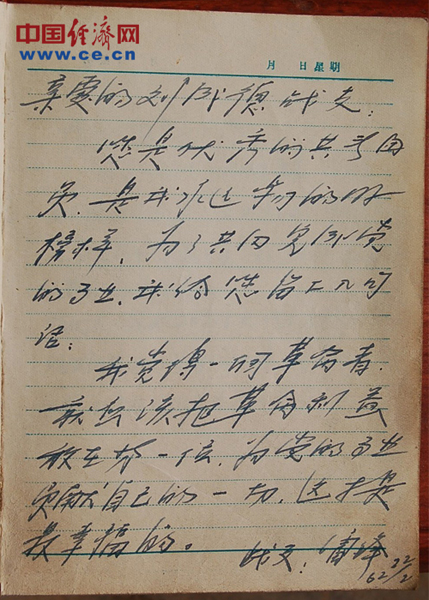 中国经济网
www.ce.cn
月 日 星期
亲爱的刘成德战友：
您是优秀的共青团
员，是我永远学习的好
榜样，为了共同完成党
的事业，我给您留上几句
话：
我觉得一個革命者，
就应该把革命利益
放在第一位，为党的事业
贡献自己的一切，这才是
最幸福的。
战友：雷锋
62 22/2